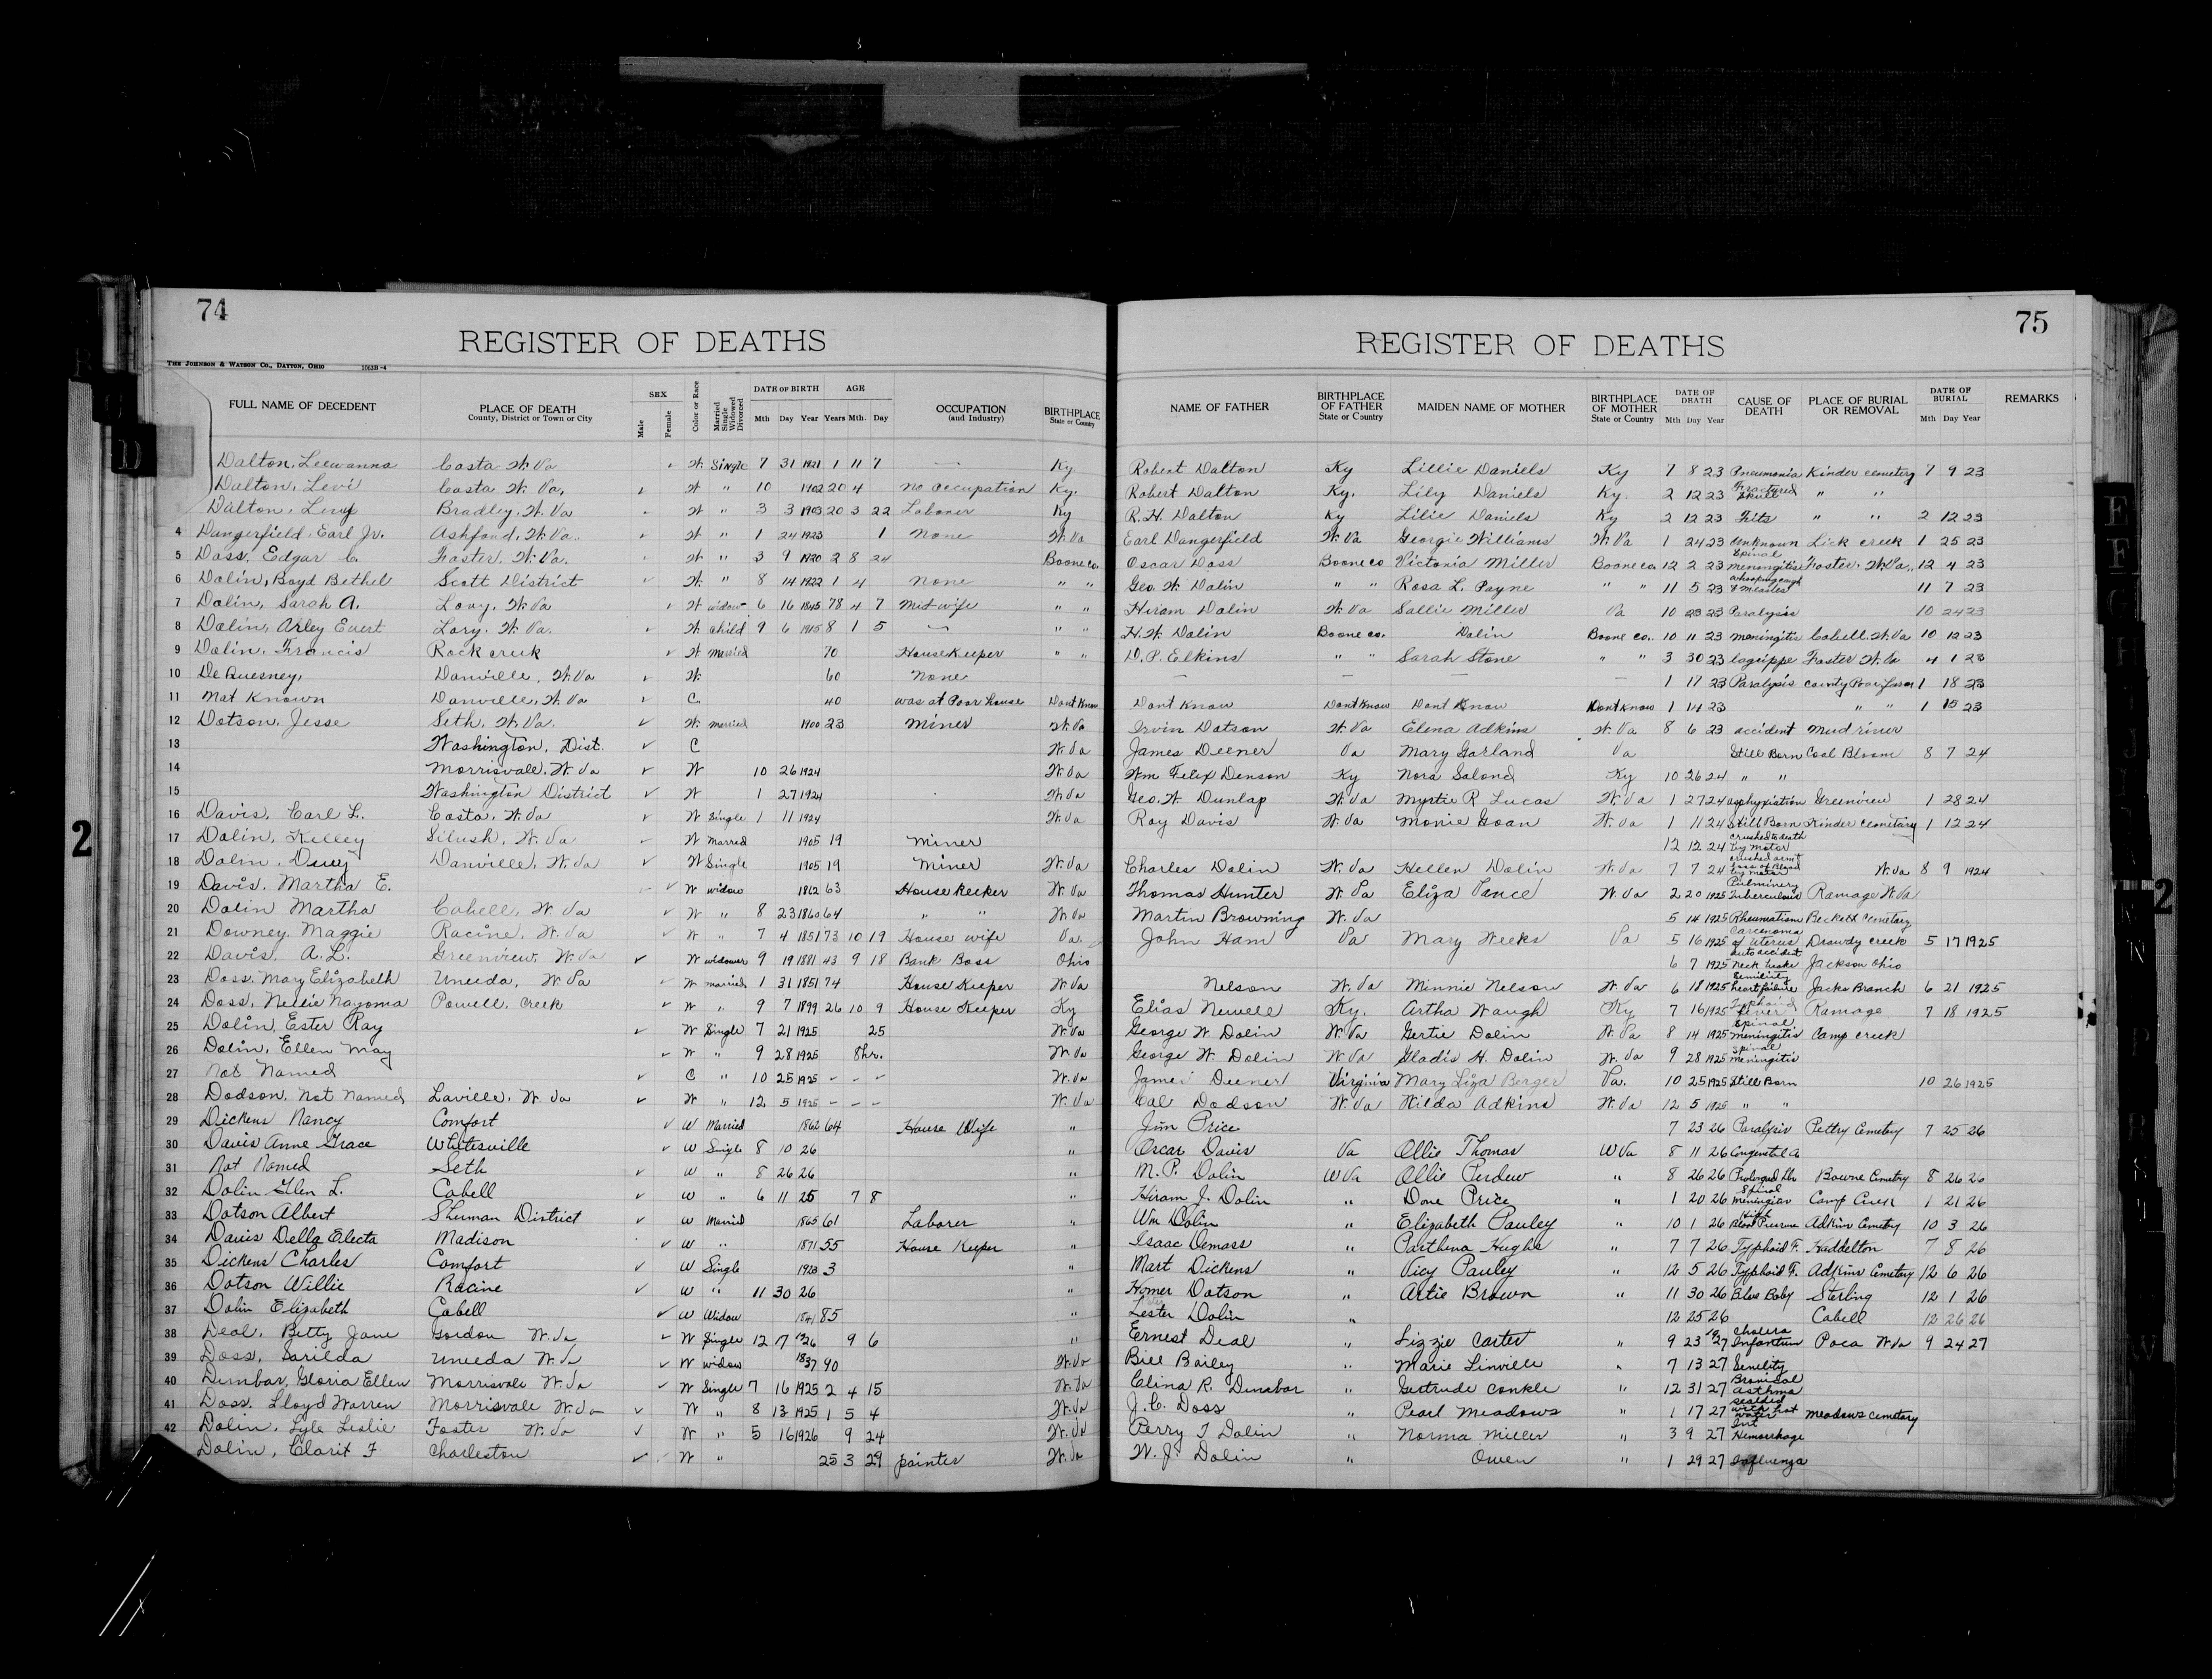 74
REGISTER OF DEATHS
THE JOHNSON & WATSON CO., DAYTON, OHIO 1063B-4
FULL NAME OF DECEDENT PLACE OF DEATH County, District or Town or City SEX Male Female Color or Race Married Single Widowed Divorced DATE OF BIRTH Mth Day Year AGE Years Mth. Day OCCUPATION (and Industry) BIRTHPLACE State or Country
Dalton, Leewanna Costa W. Va W. Single 7 31 1921 1 11 7 — Ky
Dalton, Levi Costa W. Va. W " 10 1902 20 4 No occupation Ky.
Dalton, Levy Bradley, W. Va W " 3 3 1903 20 3 22 Laborer Ky
4 Dangerfield, Earl Jr. Ashford, W. Va. W " 1 24 1923 1 None W. Va
5 Doss, Edgar C. Foster, W. Va. W " 3 9 1920 2 8 24 Boone co.
6 Dolin, Boyd Bethel Scott District W. " 8 14 1922 1 4 None " "
7 Dolin, Sarah A. Lory, W. Va W widow 6 16 1845 78 4 7 Mid-wife " "
8 Dolin, Arley Evert Lory, W. Va. W. child 9 6 1915 8 1 5 — " "
9 Dolin, Francis Rock creek W Married 70 House Keeper " "
10 De Quesney, Danville, W. Va W. 60 None
11 Not Known Danville, W. Va C. 40 was at Poor house Dont Know
12 Dotson, Jesse Seth, W. Va. W. married 1900 23 Miner W. Va
13 Washington, Dist. C W. Va
14 Morrisvale, W. Va W 10 26 1924 W. Va
15 Washington District W 1 27 1924 W. Va
16 Davis, Carl L. Costa, W. Va W Single 1 11 1924 W. Va
17 Dolin, Kelley W. Va W Married 1905 19 Miner
18 Dolin, Danville, W. Va W Single 1905 19 Miner W. Va
19 Davis, Martha E. W widow 1862 63 House Keeker W. Va
20 Dolin Martha Cabell, W. Va W " 8 23 1860 64 " " W. Va
21 Downey, Maggie Racine, W. Va W " 7 4 1851 73 10 19 House wife Va.
22 Davis, A. L. Greenview, W. Va W widower 9 19 1881 43 9 18 Bank Boss Ohio
23 Doss, Mary Elizabeth Uneeda, W. Va W married 1 31 1851 74 House Keeper W. Va
24 Doss, Nellie Nayoma Powell, Creek W " 9 7 1899 26 10 9 House Keeper Ky
25 Dolin, Ester Ray W Single 7 21 1925 25 W. Va
26 Dolin, Ellen May W " 9 28 1925 8 hr. W. Va
27 Not Named C " 10 25 1925 – – – W. Va
28 Dodson, Not Named Laville, W. Va W. " 12 5 1925 – – – W. Va
29 Dickens Nancy Comfort W Married 1862 64 House Wife "
30 Davis Anne Grace Whitesville W Single 8 10 26 "
31 Not Named Seth W " 8 26 26
32 Dolin Glen L. Cabell W " 6 11 25 7 8 "
33 Dotson Albert Sherman District W Married 1865 61 Laborer "
34 Davis Della Electa Madison W " 1871 55 House Keeper "
35 Dickens Charles Comfort W Single 1923 3 "
36 Dotson Willie Racine W " 11 30 26 "
37 Dolin Elizabeth Cabell W Widow 1841 85 "
38 Deal, Betty Jane Gordon W. Va W Single 12 17 1926 9 6 "
39 Doss, Sarilda Uneeda W. Va W widow 1837 90 W. Va
40 Dunbar, Gloria Ellen Morrisvale W. Va W Single 7 16 1925 2 4 15 W. Va
41 Doss, Lloyd Warren Morrisvale W. Va W " 8 13 1925 1 5 4 W. Va
42 Dolin, Lyle Leslie Foster W. Va W " 5 16 1926 9 24 W. Va
Dolin, Clarit F Charleston W " 25 3 29 painter W. Va
75
REGISTER OF DEATHS
NAME OF FATHER BIRTHPLACE OF FATHER State or Country MAIDEN NAME OF MOTHER BIRTHPLACE OF MOTHER State or Country DATE OF DEATH Mth Day Year CAUSE OF DEATH PLACE OF BURIAL OR REMOVAL DATE OF BURIAL Mth Day Year REMARKS
Robert Dalton Ky Lillie Daniels Ky 7 8 23 Pneumonia Kinder cemetery 7 9 23
Robert Dalton Ky. Lily Daniels Ky. 2 12 23 Fractured Skull " "
R. H. Dalton Ky Lilie Daniels Ky 2 12 23 Fits " " 2 12 23
Earl Dangerfield W. Va Georgie Williams W. Va 1 24 23 Unknown Lick creek 1 25 23
Oscar Doss Boone co Victoria Miller Boone co. 12 2 23 Spinal meningitis Foster, W. Va. 12 4 23
Geo. W. Dolin " " Rosa L. Payne " " 11 5 23 whooping cough & measles 11 7 23
Hiram Dolin W. Va Sallie Miller Va 10 23 23 Paralysis 10 24 23
H. W. Dolin Boone co. Dolin Boone co. 10 11 23 meningitis Cabell, W. Va 10 12 23
D. P. Elkins " " Sarah Stone " " 3 30 23 Lagrippe Foster W. Va 4 1 23
— — — — 1 17 23 Paralysis county Poor farm 1 18 23
Dont Know Dont Know Dont Know Dont Know 1 14 23 " " 1 15 23
Irvin Dotson W. Va Elena Adkins W. Va 8 6 23 accident Mud river
James Deener Va Mary Garland Va Still Born Coal Bloom 8 7 24
Wm Felix Denson Ky Nora Salond Ky 10 26 24 " "
Geo. W. Dunlap W. Va Myrtie R Lucas W. Va 1 27 24 asphyxiation Greenview 1 28 24
Roy Davis W. Va Monie Goan W. Va 1 11 24 Still Born Kinder cemetery 1 12 24
12 12 24 crushed to death by motor
Charles Dolin W. Va Hellen Dolin W. Va 7 7 24 crushed arm loss of Blood by motor W. Va 8 9 1924
Thomas Hunter W. Va Eliza Vance W. Va 2 20 1925 Pulminery Tuberculosis Ramage W. Va
Martin Browning W. Va 5 14 1925 Rheumatism Beckett Cemetary
John Ham Va Mary Weeks Va 5 16 1925 Carcenoma of Uterus Drawdy creek 5 17 1925
6 7 1925 auto accident Neck broke Jackson Ohio
Nelson W. Va Minnie Nelson W. Va 6 18 1925 Semility heart failure Jacks Branch 6 21 1925
Elias Newell Ky. Artha Waugh Ky 7 16 1925 Typhoid fever Ramage 7 18 1925
George W. Dolin W. Va Gertie Dolin W. Va 8 14 1925 Spinal meningitis Camp creek
George W. Dolin W. Va Gladis H. Dolin W. Va 9 28 1925 Spinal meningitis
James Deener Virginia Mary Liza Berger Va. 10 25 1925 Still Born 10 26 1925
Cal Dodson W. Va Hilda Adkins W. Va 12 5 1925 " "
Jim Price 7 23 26 Paralysis Pettry Cemetery 7 25 26
Oscar Davis Va Ollie Thomas W Va 8 11 26 Congenital A
M. P. Dolin W Va Ollie Perdew " 8 26 26 Prolonged Bowne Cemetry 8 26 26
Hiram J. Dolin " Done Price " 1 20 26 Spinal Camp Creek 1 21 26
Wm Dolin " Elizabeth Pauley " 10 1 26 High Blood Pressure Adkins Cemetry 10 3 26
Isaac Demass " Parthena Hughs " 7 7 26 Typhoid F. Huddelton 7 8 26
Mart Dickens " Vicy Pauley " 12 5 26 Typhoid F. Adkins Cemetary 12 6 26
Homer Dotson " Artie Brown " 11 30 26 Blue Baby Sterling 12 1 26
Lester Dolin " 12 25 26 Cabell 12 26 26
Ernest Deal " Lizzie Carter " 9 23 1927 Cholera Infantum Poca W. Va 9 24 27
Bill Bailey " Marie Linville " 7 13 27 Senility
Clina R. Dunabar " Gertrude Conkle " 12 31 27 Bronical asthma
J. C. Doss " Pearl Meadows " 1 17 27 scalded with hot water Meadows cemetary
Perry T Dolin " Norma Miller " 3 9 27 Int Hemorrhage
W. J. Dolin " Owen " 1 29 27 Influenza